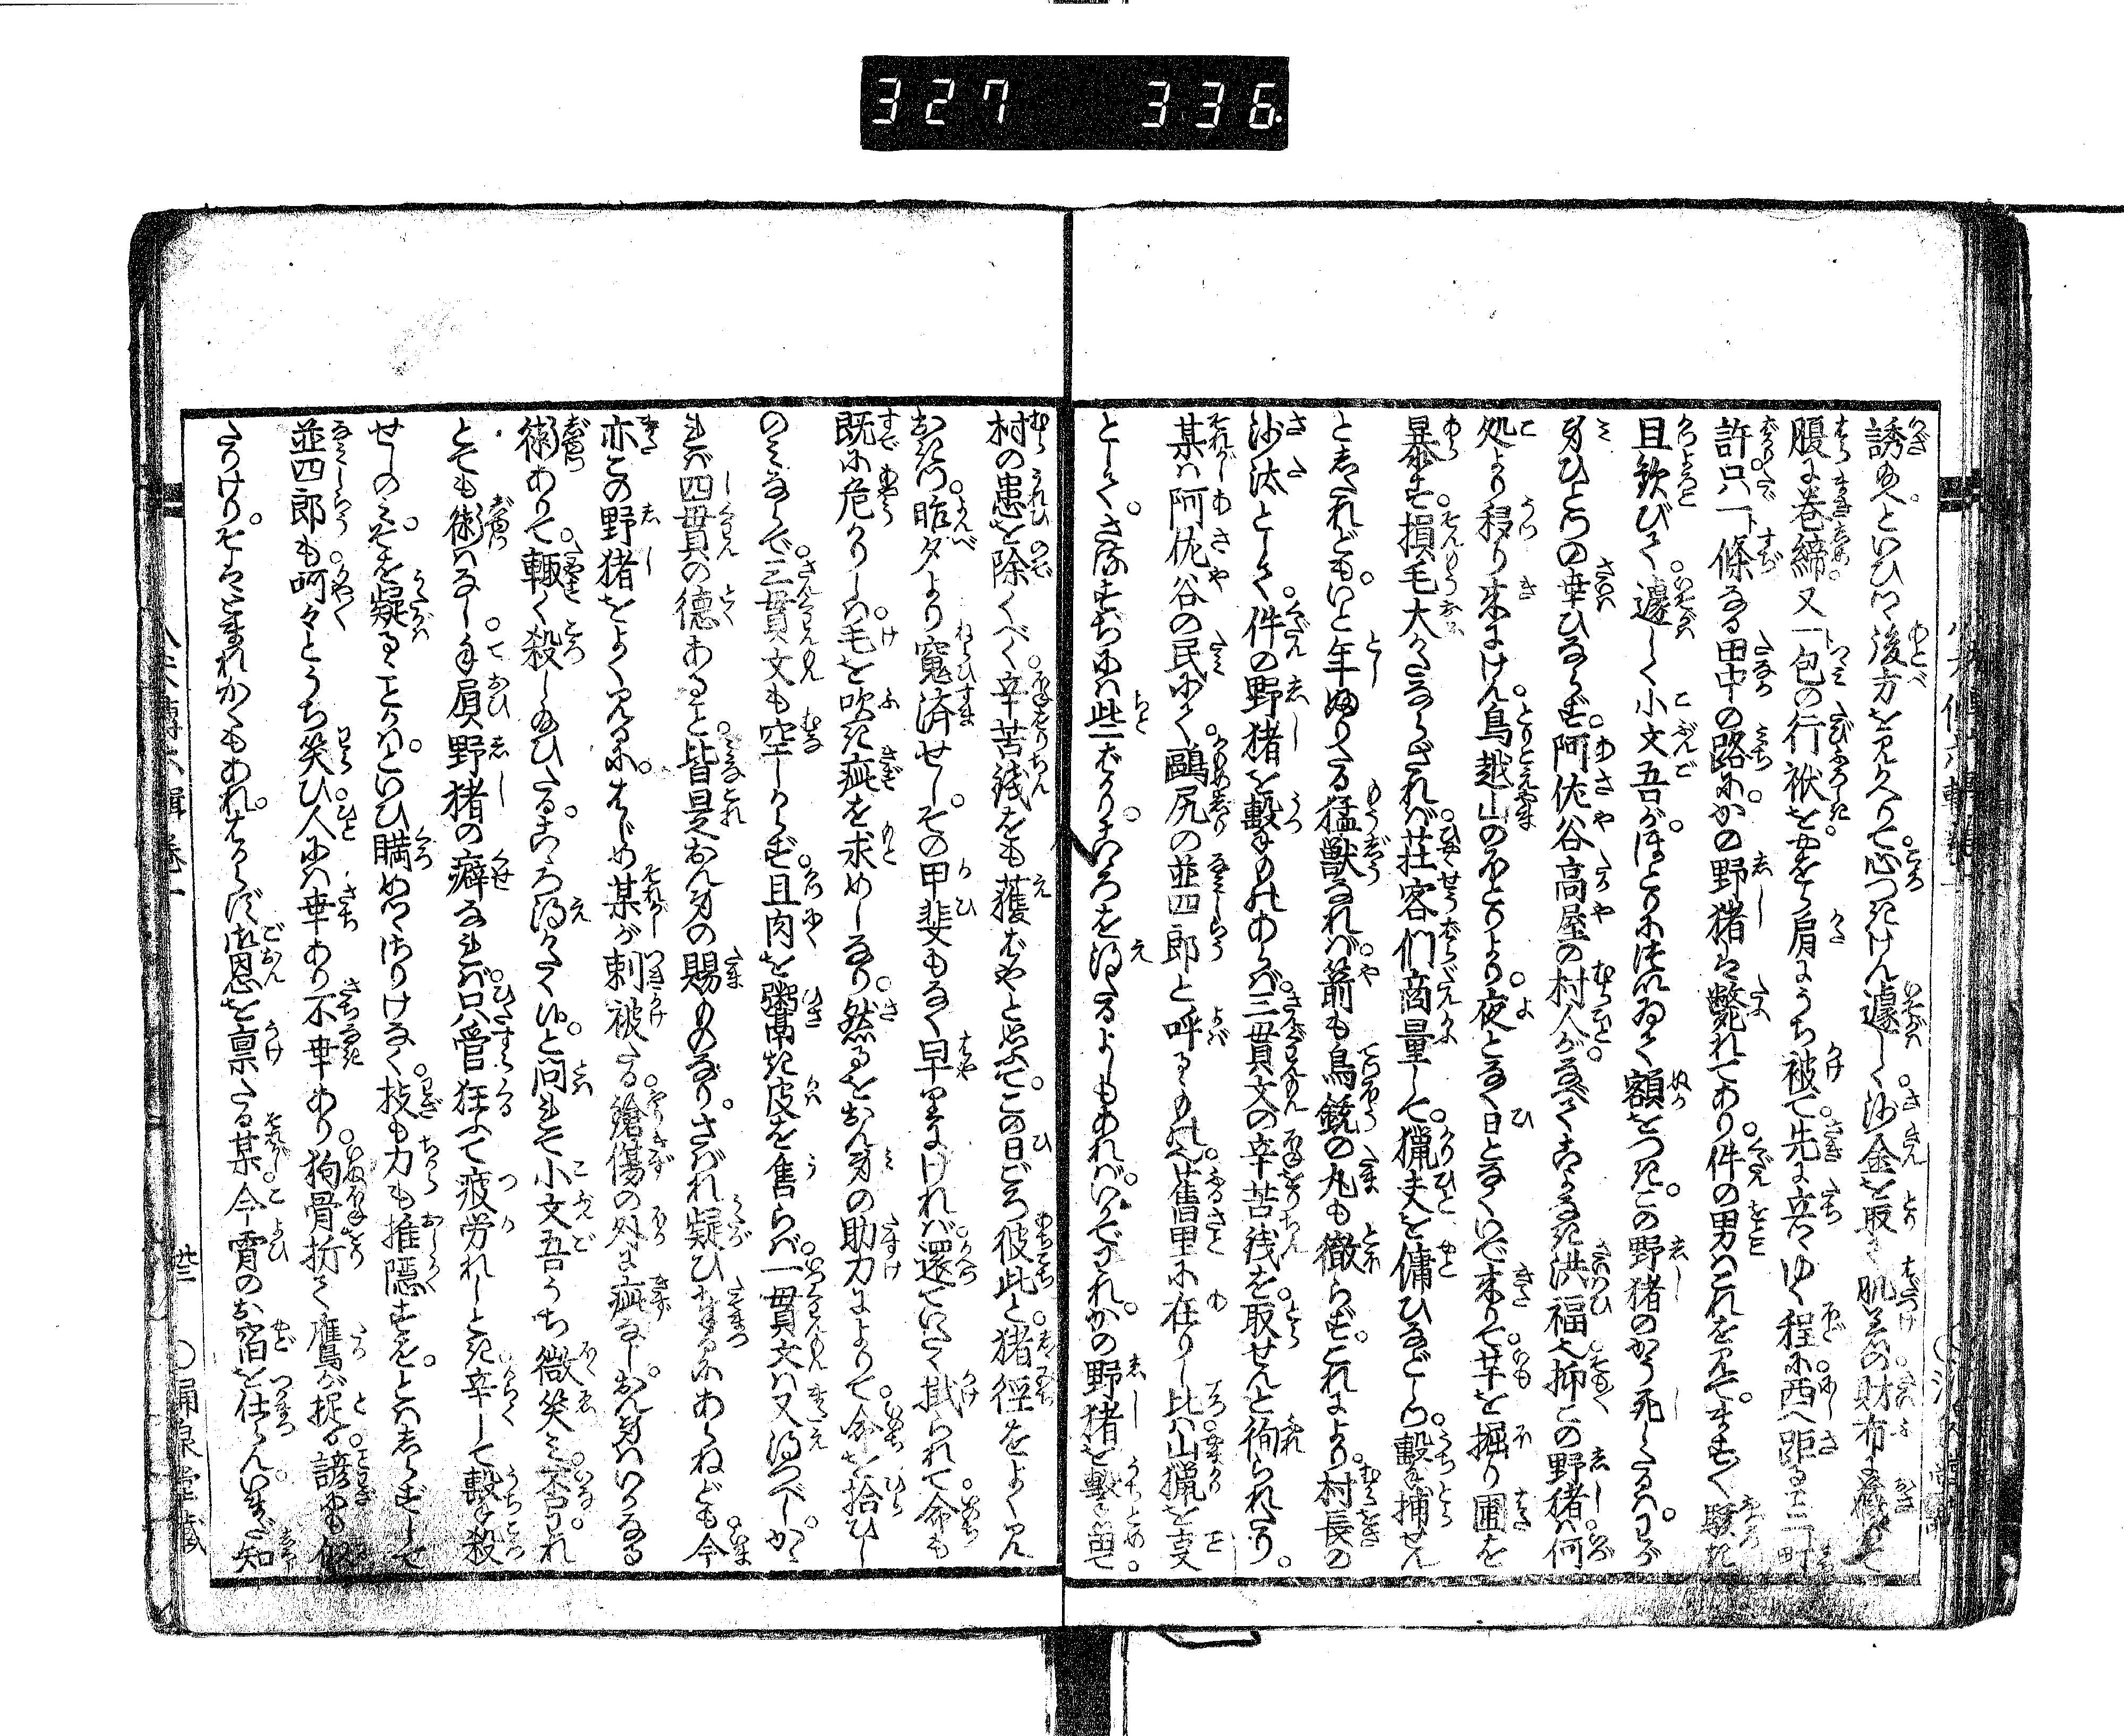 327 336
誘ゆへといひつゝ後方を見かへりて心つきけん遽しく沙金を取て肌着の財布に蔵めて
腹に巻締又一包の行袱をやをら肩にうち被て先に立てゆく程に西へ距る二三町
許只一條なる田中の路にかの野猪は斃れてあり件の男はこれを見てますます駭き
且歓びて遽しく小文吾がほとりについゐて額をつきこの野猪のかう死したるはわが
身ひとつの幸ひならず阿佐谷高屋の村人がなべてこよなき洪福也抑この野猪は何
処より移り来にけん鳥越山のほとりより夜となく日となくいで来りて芋を掘り圃を
暴す損毛大かたならざれば荘客們商量して猟夫を傭ひなどしつ撃も捕せん
としたれどもいと年ふりたる猛獣なれば箭も鳥銃の丸も徹らずこれにより村長の
沙汰として件の野猪を撃ものあらば三貫文の辛苦銭を取せんと徇られたり
某は阿佐谷の民にて鷗尻の並四郎と呼るゝもの也舊里に在りし比は山猟を支
としてさるすぢには些ばかりこゝろを得たるよしもあればいかでわれかの野猪を撃畄て
村の患を除くべく辛苦銭をも獲ばやと思ふてこの日ごろ彼此と猪徑をよく見
おきつ昨夕より窺済せしその甲斐もなく早りにければ還ていたく掛られて命も
既に危かりしは毛を吹き疵を求めしなり然るをおん身の助力によりて命を拾ひし
のみならで三貫文も空しからず且肉を鬻き皮を售らば一貫文は又得つべしかゝ
れば四貫の徳あること皆是おん身の賜ものなりさばれ疑ひまつるにあらねども今
亦この野猪をよく見るにはじめ某が刺被たる鎗傷の外に疵なしおん身はいかなる
術ありて輙く殺し給ひたるこゝろ得かたく侍と問れて小文吾うち微笑み否われ
とても術はなし手屓野猪の癖なれば只管狂ふて疲労れしとき辛くして撃も殺
せしのみそを疑るゝことかはといひ瞞めつゝほこりけなく技も力も推隠すをとはしらずして
並四郎も呵々とうち笑ひ人には幸あり不幸あり狗骨折て鷹が捉る諺にも似
たりけりそはとまれかくもあれはからず洪恩を禀たる某今霄のお宿を仕らんいまだ知